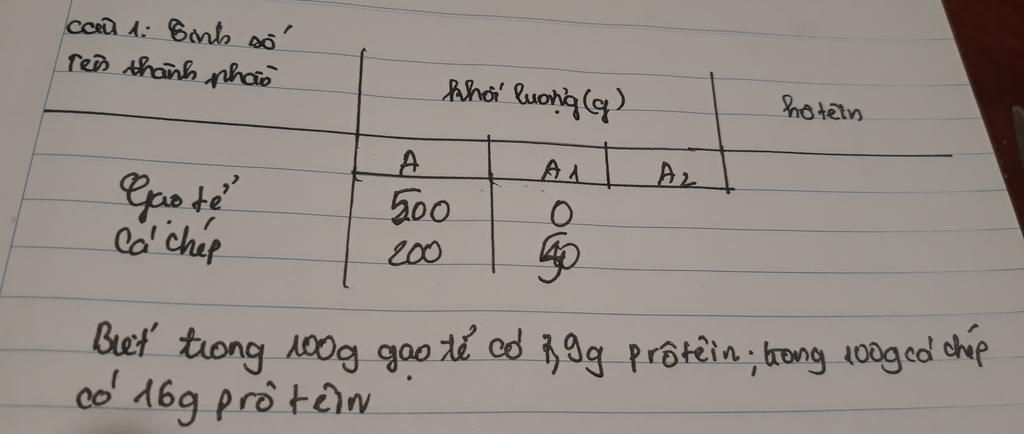 Câu 1: Sinh số
Tên thành phần
Khối lượng (g)
Protein
A A1 A2
Gạo tẻ 500 0
Cá chép 200
Biết trong 100g gạo tẻ có 7,9g prôtêin; trong 100g cá chép
có 16g prôtêin